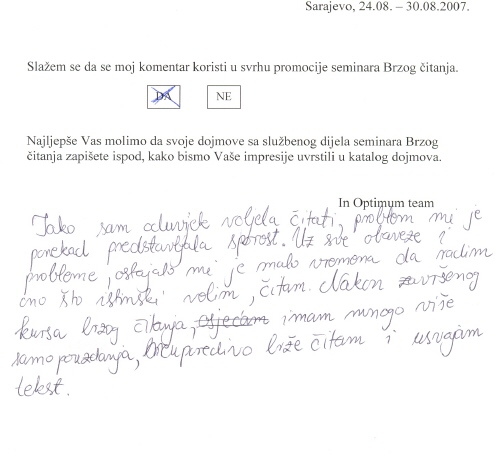 Sarajevo, 24.08. – 30.08.2007.
Slažem se da se moj komentar koristi u svrhu promocije seminara Brzog čitanja.
DA NE
Najljepše Vas molimo da svoje dojmove sa službenog dijela seminara Brzog
čitanja zapišete ispod, kako bismo Vaše impresije uvrstili u katalog dojmova.
In Optimum team
Iako sam oduvjek voljela čitati, problem mi je
ponekad predstavljala sporost. Uz sve obaveze i
probleme, ostajalo mi je malo vremena da radim
ono što istinski volim, čitam. Nakon završenog
kursa brzog čitanja, osjećam imam mnogo više
samopouzdanja, neuporedivo brže čitam i usvajam
tekst.